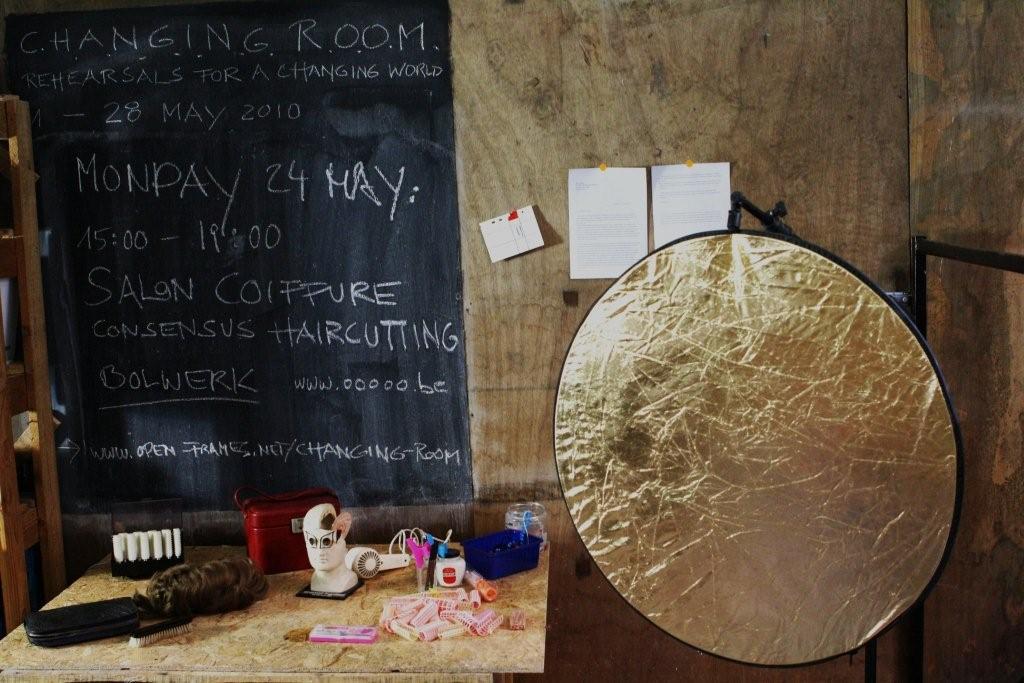 C.H.A.N.G.I.N.G. R.O.O.M.
REHEARSALS FOR A CHANGING WORLD
1 – 28 MAY 2010
MONDAY 24 MAY:
15:00 – 19:00
SALON COIFFURE
CONSENSUS HAIRCUTTING
BOLWERK www.ooooo.be
→ www.OPEN-FRAMES.NET/CHANGING-ROOM